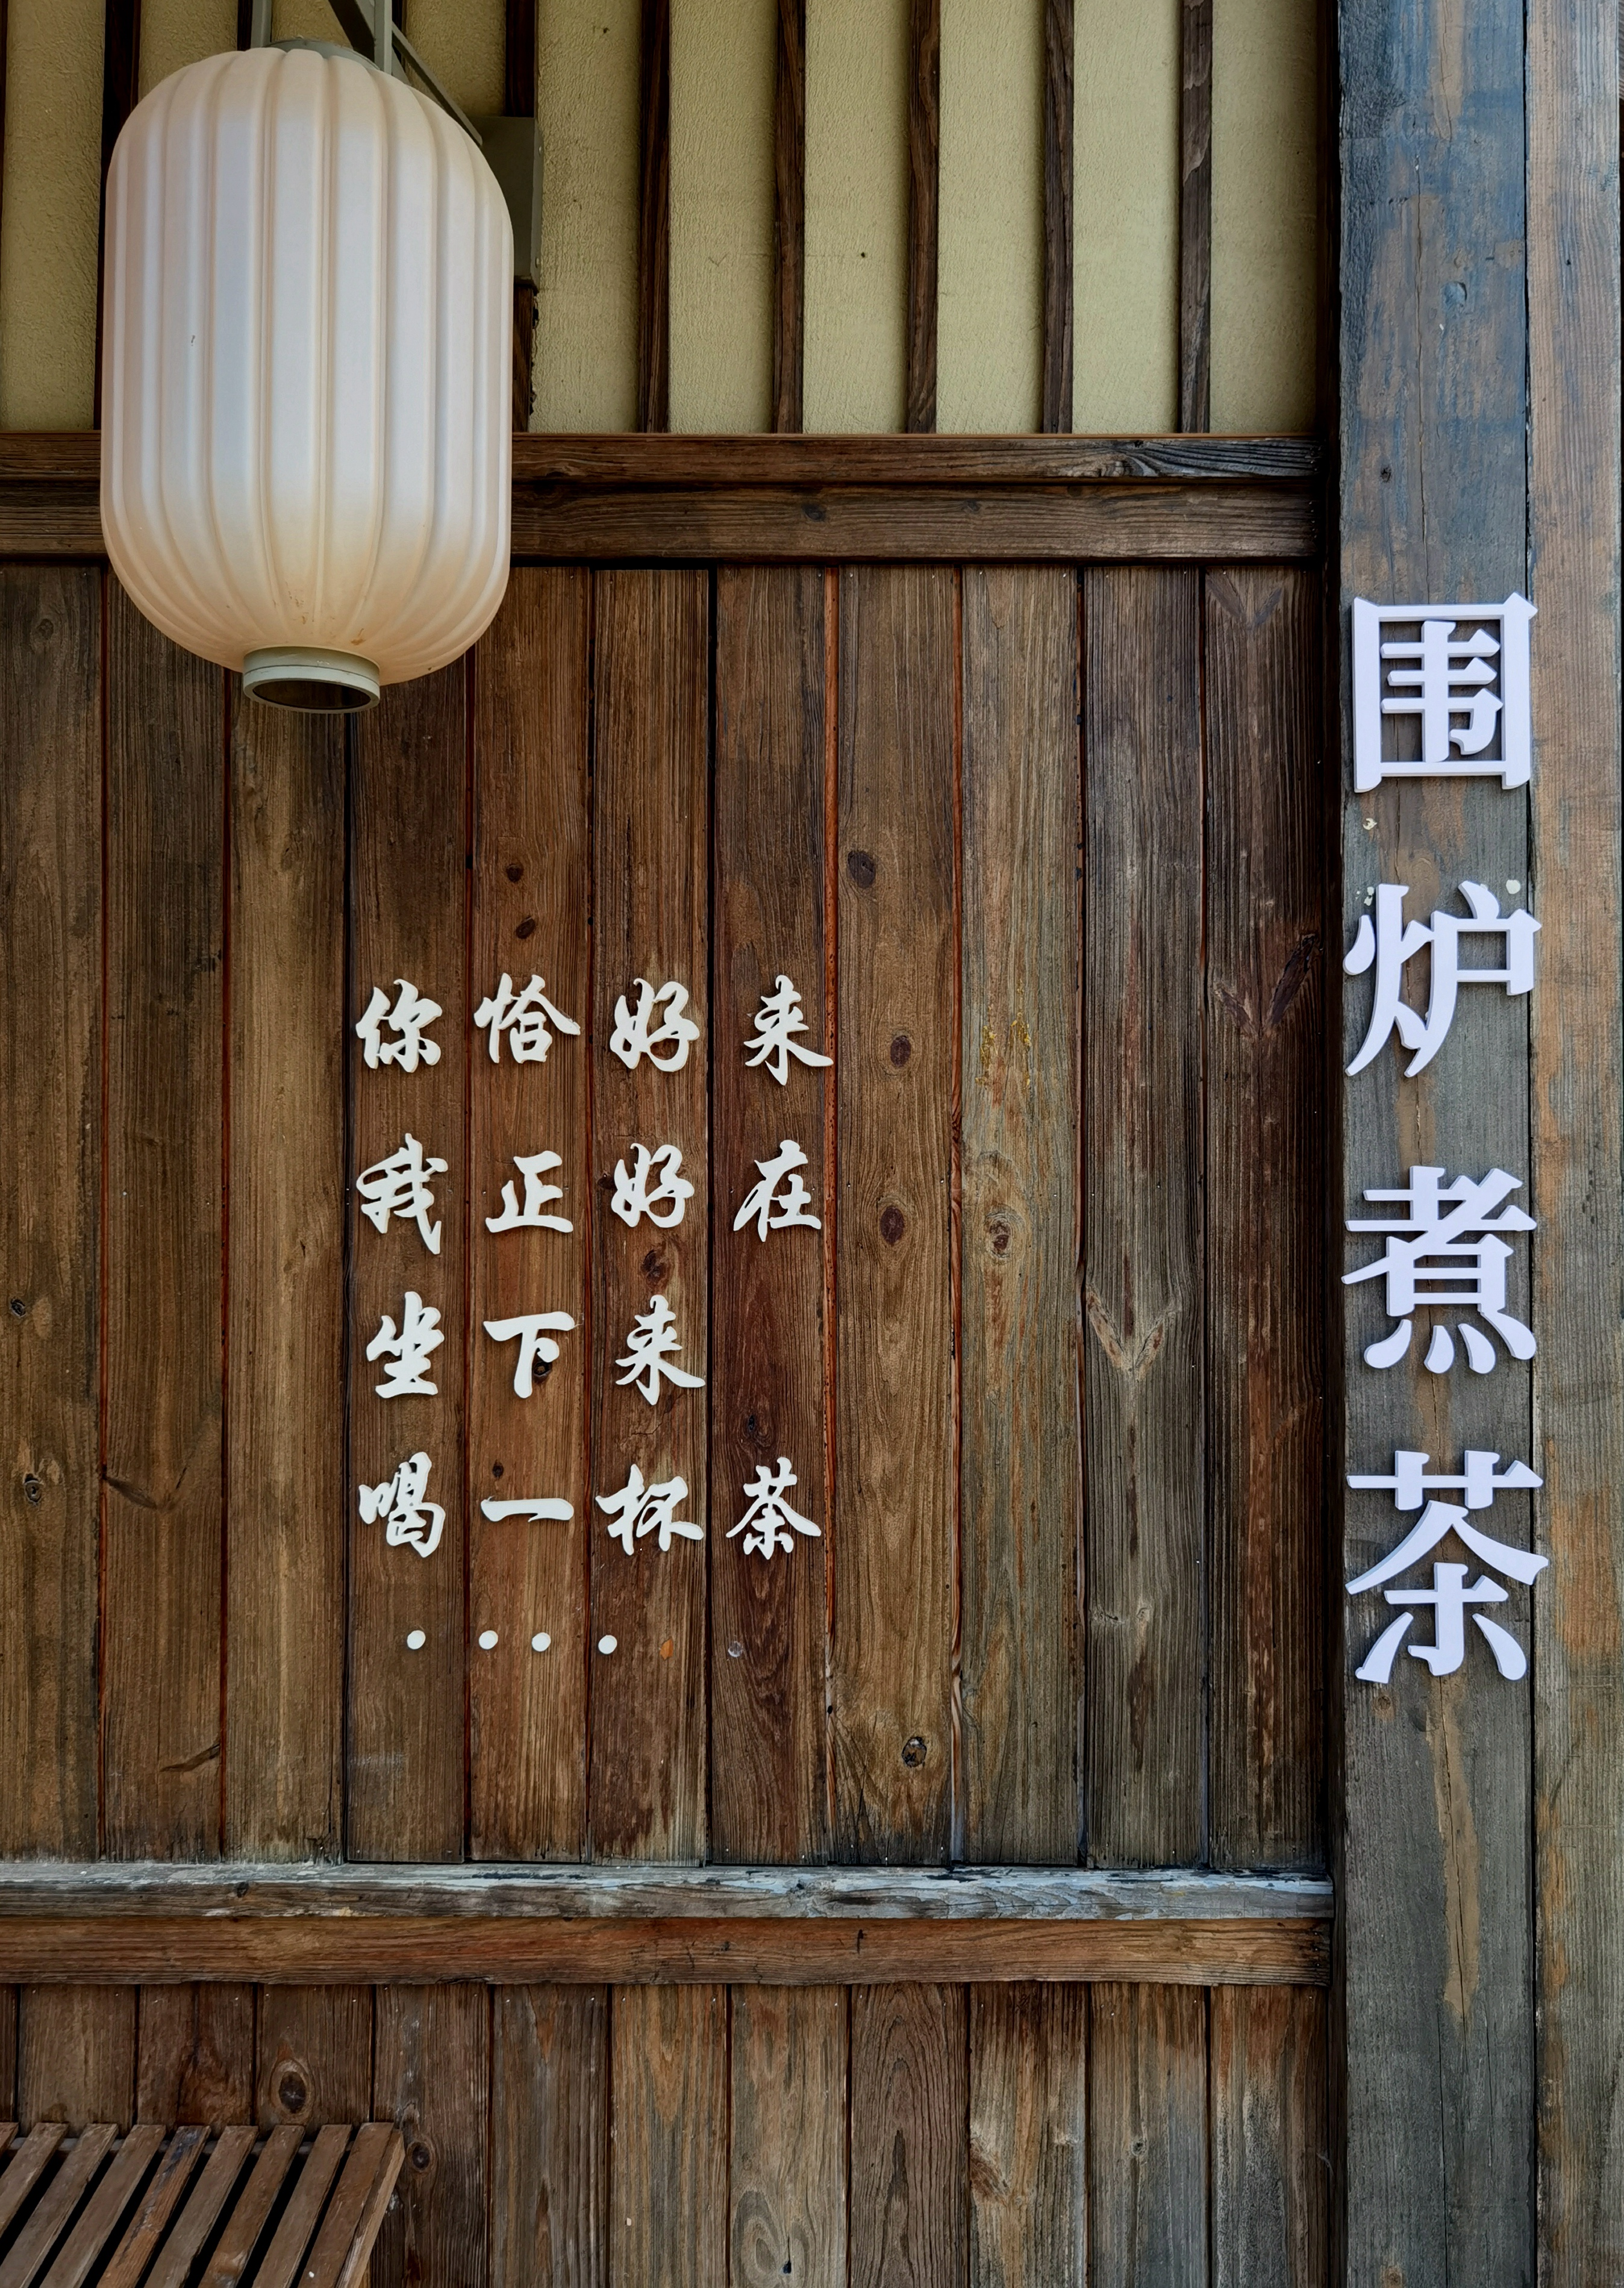 你恰好来
我正好在
坐下来
喝一杯茶
····
围炉煮茶